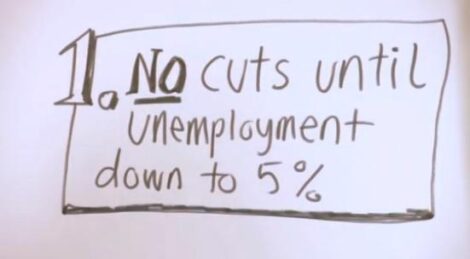 1. No cuts until
unemployment
down to 5%